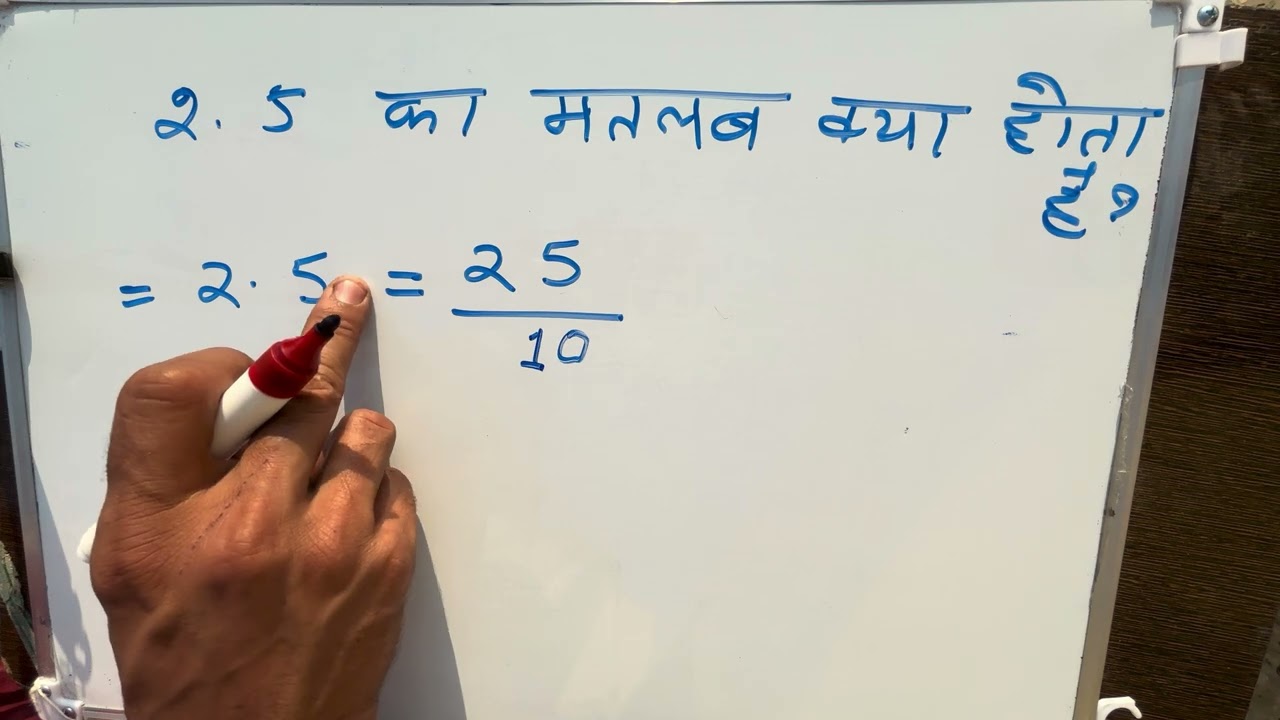 2.5 का मतलब क्या होता
है?
= 2.5 = 25
10